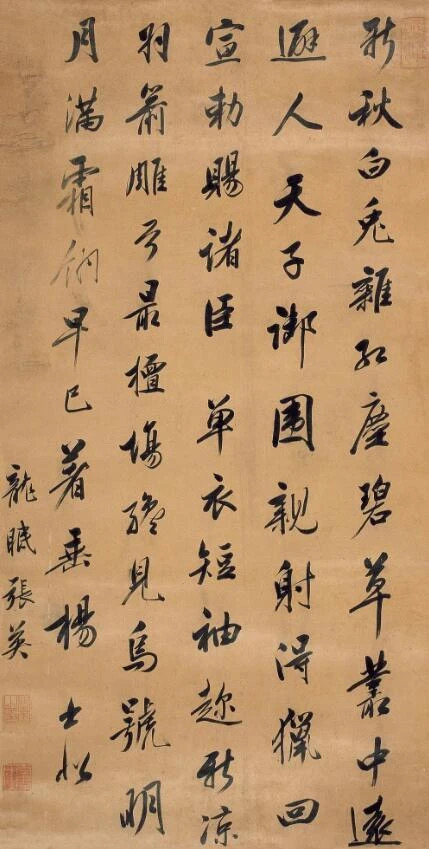 新秋白兔離紅塵碧草叢中遠
避人天子御圍親射得獵回
宣勅賜諸臣單衣短袖趂新涼
羽箭雕弓最擅場纔見烏號明
月滿霜早已著垂楊
龍眠張英